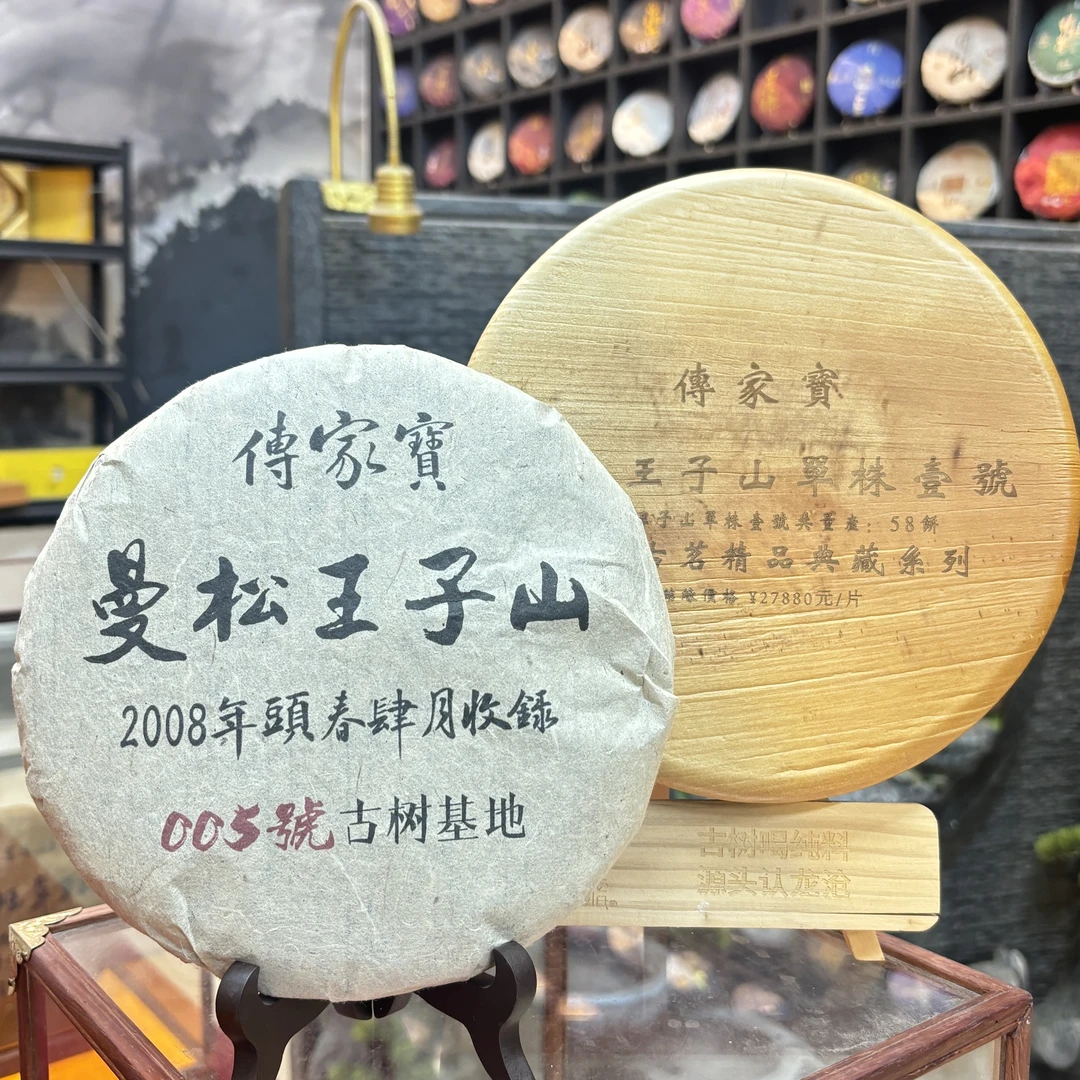 傳家寶
曼松王子山
2008年頭春肆月收録
005號古树基地
傳家寶
王子山單株壹號
子山單株壹號共壹壺：58餅
古茗精品典藏系列
價格 ¥27880元/片
古树喝纯料
源头认龙沧